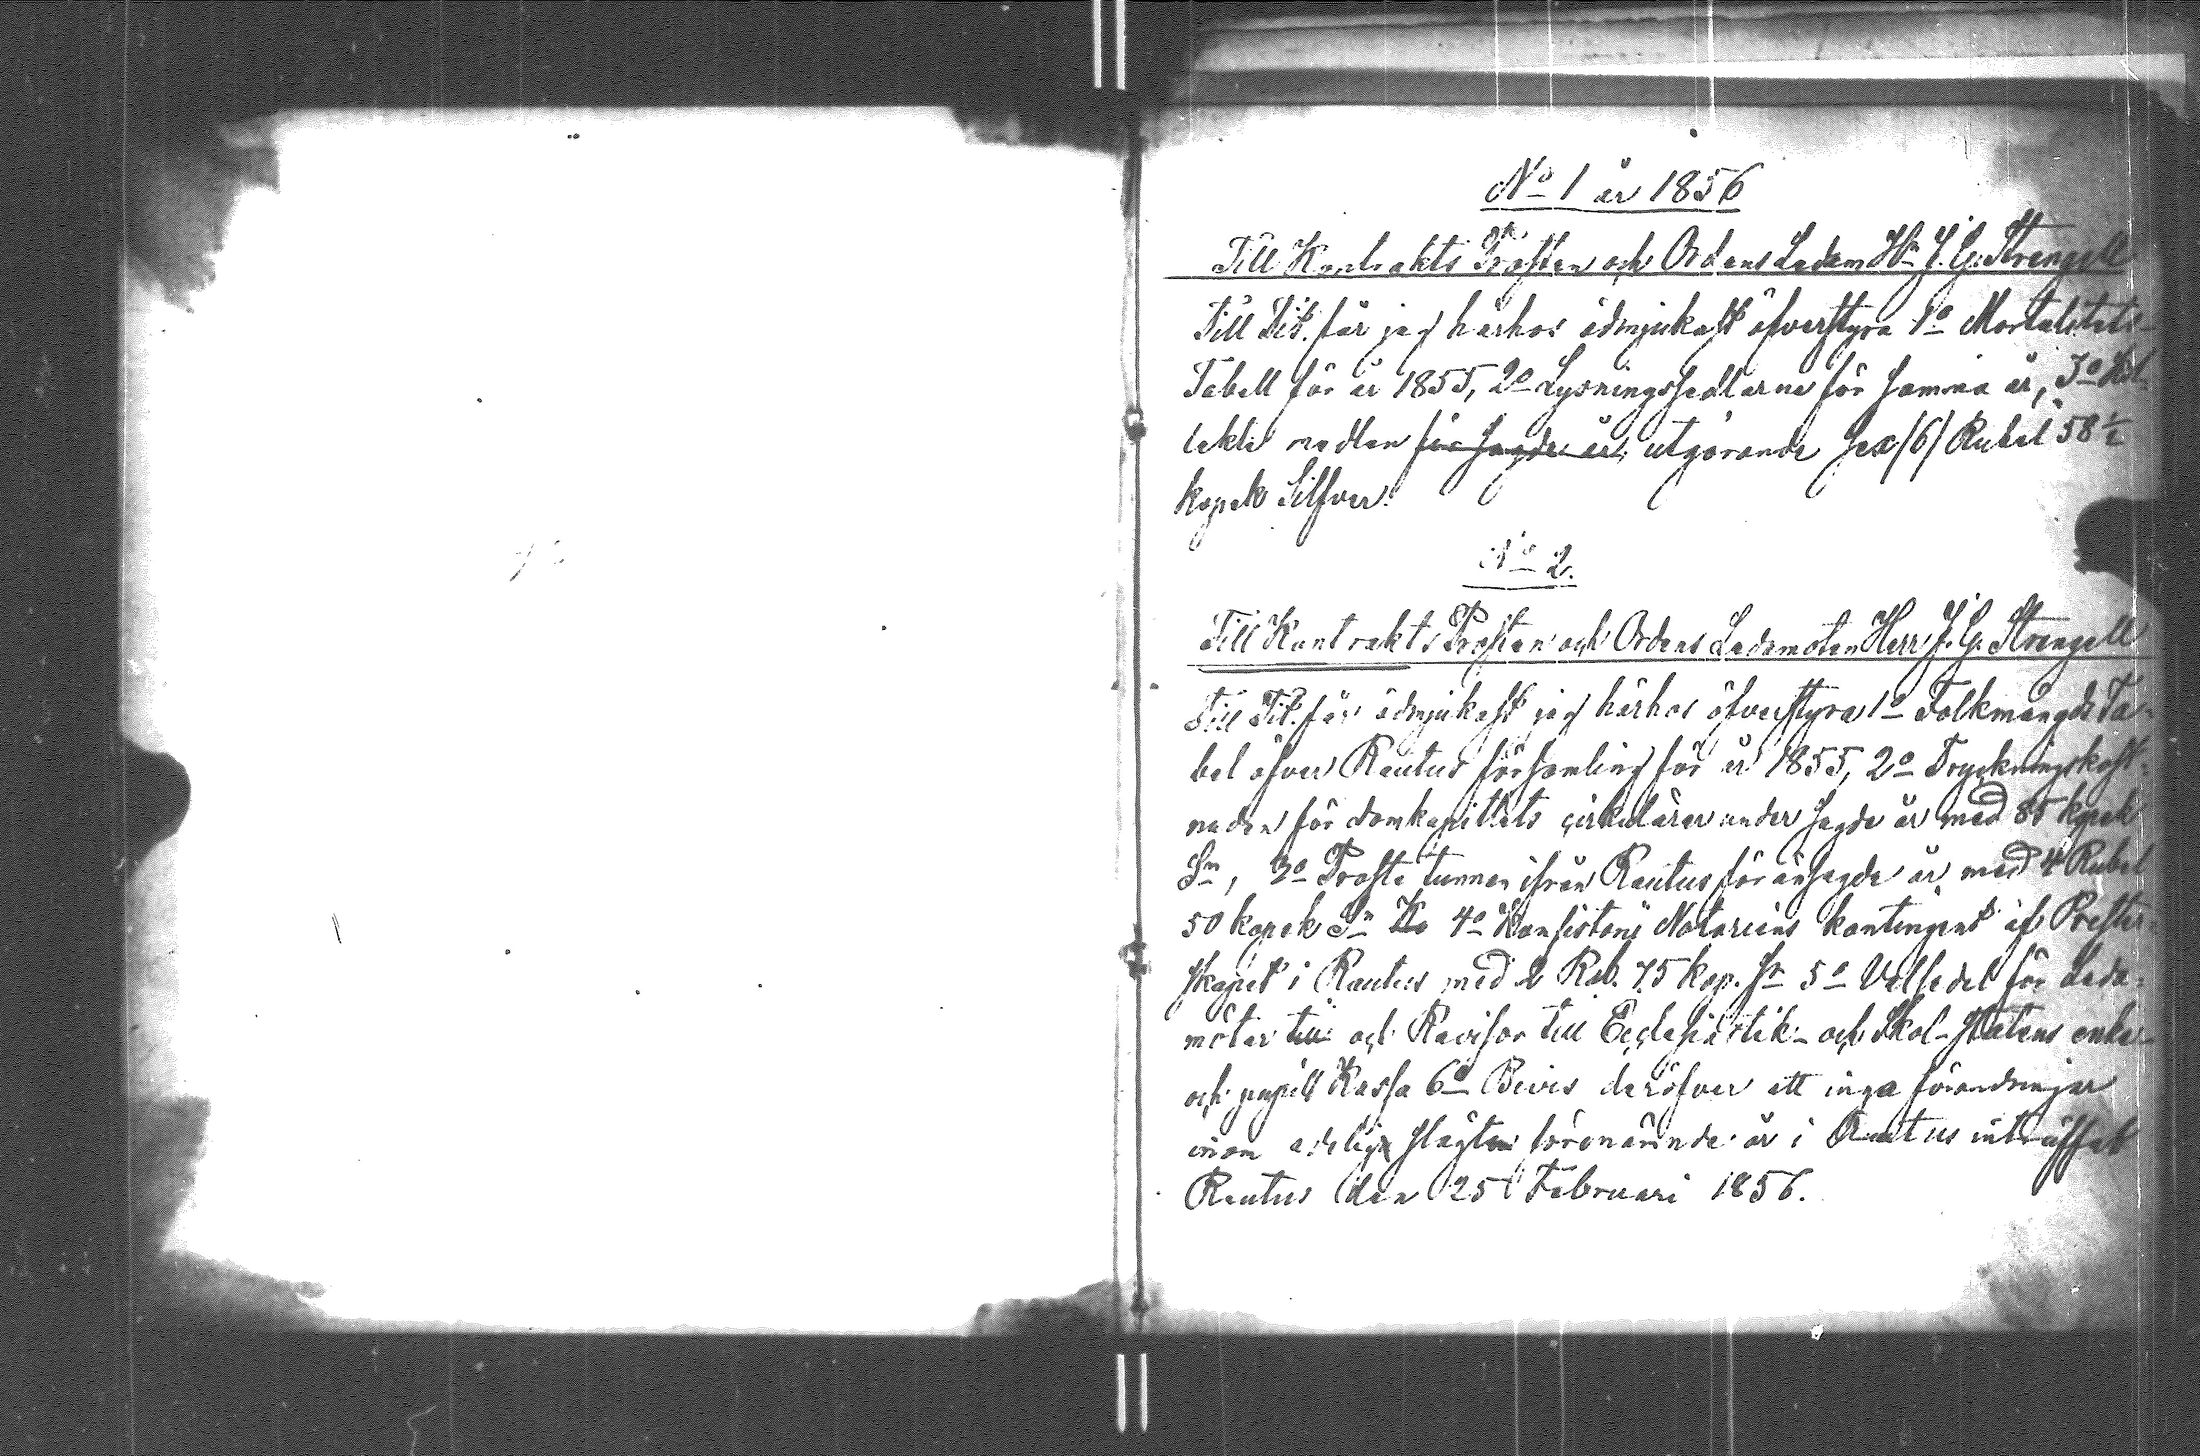 No 1 år 1856
Till Kontrakts Prosten och Ordens Ledam Hr J. G. Strengell
Till Tit. får jag härhos ödmjukast öfverstyra 1o Mortalitets-
Tabell för år 1855, 2o Lysningssedlarne för samma år, 3o Kol-
lekt medlen för sagde år, utgörande sex (6) Rubel 58 1/2
kopek Silfver.
No 2.
Till Kontrakts Prosten och Ordens Ledamoten Herr J. G. Strengell
Till Tit. får ödmjukast jag härhos öfverstyra 1o Folkmängds Ta-
bel öfver Rautus församling för år 1855, 2o Tryckningskost-
naden för domkapitlets cirkulärer under sagde år med 85 kopek
Sm, 3o Proste tunnan ifrån Rautus för ansagde år med 4 Rubel
50 kopek Sr Ko 4o Konsistorii Notariens kontingent af Prester-
skapet i Rautus med 2 Rub. 75 kop. Sr 5o Valsedel för Leda-
möter till och Revisor till Ecclesiastik- och Skol-Statens enke-
och pupill Kassa 6o Bevis deröfver att inga förändringar
inom adeliga slägten förenämnde år i Rautus inträffat
Rautus den 25 Februari 1856.